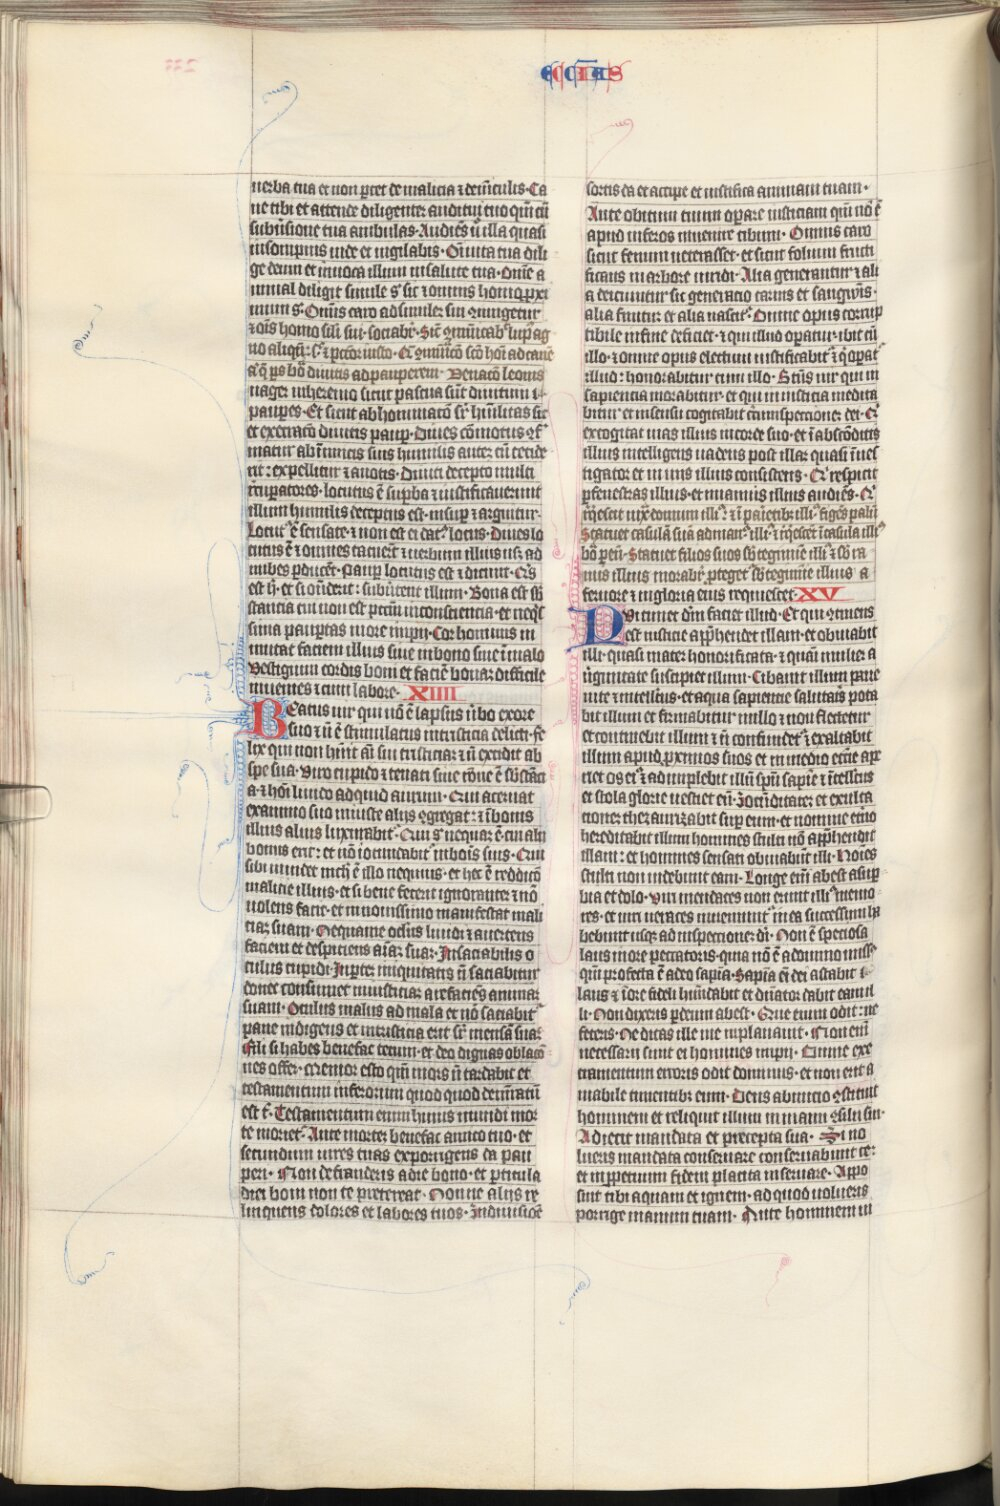 ECCIAS
uerba tua et non parcet de malicia et de vinculis. Ca
ue tibi et attende diligenter auditui tuo quoniam cum
subuersione tua ambulas. Audiens vero illa quasi
in sompnis vide et vigilabis. Omni vita tua dili
ge deum et inuoca illum in salute tua. Omne a
nimal diligit simile sibi sic et omnis homo proxi
mum sibi. Omnis caro ad similem sibi coniungetur
et omnis homo simili sui sociabitur. Si communicabit lupus ag
no aliquando sic et peccator iusto. Que communicatio sancto homini ad canem
aut que pars bona diuitis ad pauperem. Venacio leonis
onager in heremo sicut pascua sunt diuitum
pauperes. Et sicut abhominacio superbo humilitas sic
et execracio diuitis pauper. Diues commotus confir
matur ab amicis suis humilis autem cum cecide
rit: expelletur et a notis. Diuiti decepto multi
recuperatores. locutus est superba et iustificauerunt
illum humilis deceptus est. insuper et arguitur.
Locutus est sensate. et non est ei datus locus. Diues lo
cutus est et omnes tacuerunt et uerbum illius usque ad
nubes perducent. Pauper locutus est et dicunt. Quis
est hic. et si offenderit: subuertent illum. Bona est sub
stancia cui non est peccatum in consciencia. et nequis
sima paupertas in ore impii. Cor hominis in
mutat faciem illius siue in bono siue in malo
Vestigium cordis boni et faciem bonam difficile
inuenies et cum labore. XIIII
Beatus uir qui non est lapsus verbo ex ore
suo et non est stimulatus in tristicia delicti. fe
lix qui non habuit animi sui tristiciam et non excidit ab
spe sua. Viro cupido et tenaci sine ratione est substanci
a. et homini liuido ad quid aurum. Qui aceruat
ex animo suo iniuste aliis congregat: et in bonis
illius alius luxuriabit. Qui sibi nequam est cui alii
bonus erit: et non iocundabitur in bonis suis. Qui
sibi inuidet nichil est illo nequius. et hec est reddicio
malicie illius. et si bene fecerit ignoranter et non
uolens facit. et in nouissimo manifestat mali
ciam suam. Nequam est oculus liuidi et auertens
faciem et despiciens animam suam. Insaciabilis o
culus cupidi. In partem iniquitatis non saciabitur
donec consumet iniusticiam arefaciens animam
suam. Oculus malus ad mala et non saciabitur
pane indigens et in tristicia erit super mensam suam
Fili si habes benefac tecum. et deo dignas oblacio
nes offer. Memor esto quoniam mors non tardabit et
testamentum inferorum quod quod demonstratum
est tibi. Testamentum enim huius mundi mor
te morietur. Ante mortem benefac amico tuo. et
secundum uires tuas exporrigens da pau
peri. Non defrauderis a die bono. et particula
diei boni non te pretereat. Nonne aliis re
linquens dolores et labores tuos. In diuisione
sortis da et accipe et iustifica animam tuam.
Ante obitum tuum operare iusticiam quoniam non est
apud inferos inuenire cibum. Omnis caro
sicut fenum ueterasset. et sicut folium fructi
ficans in arbore uiridi. Alia generantur et ali
a deiciuntur sic generacio carnis et sangwinis.
alia finitur et alia nascitur. Omne opus corrup
tibile in fine deficiet. et qui illud operatur ibit cum
illo. et omne opus electum iustificabitur et qui operatur
illud: honorabitur cum illo. Beatus uir qui in
sapiencia morabitur. et qui in iusticia medita
bitur et in sensu cogitabit circumspectionem dei. Qui
excogitat uias illius in corde suo. et in absconditis
illius intelligens uadens post illam quasi inues
tigator et in uiis illius consistens. Qui respicit
per fenestras illius. et in ianuis illius audiens. Qui
requiescit iuxta domum illius et in parietibus illius figens palum
Statuet casulam suam ad manus illius et requiescent in casula illius
bona per euum. Statuet filios suos sub tegmine illius et sub ra
mis illius morabitur. protegetur sub tegmine illius a
feruore et in gloria eius requiescet. XV
Qui timet deum faciet illud. Et qui continens
est iusticie apprehendet illam. et obuiabit
illi. quasi mater honorificata. et quasi mulier a
uirginitate suscipiet illum. Cibauit illum pane
uite et intellectus. et aqua sapiencie salutaris pota
bit illum et firmabitur in illo et non flectetur
et continebit illum et non confundetur et exaltabit
illum apud proximos suos et in medio ecclesie ape
riet os eius et adimplebit illum spiritu sapiencie et intellectus
et stola glorie uestiet eum. Jocunditatem et exulta
cionem thezaurizabit super eum. et nomine eterno
hereditabit illum homines stulti non apprehendent
illam: et homines sensati obuiabunt illi. Homines
stulti non uidebunt eam. Longe enim abest a super
bia et dolo. Viri mendaces non erunt illius memo
res. et uiri ueraces inueniuntur in ea successum ha
bebunt usque ad inspectionem dei. Non est speciosa
laus in ore peccatoris. quia non est a domino missus
quoniam profecta est a deo sapiencia. Sapiencie enim dei astabit
laus et in ore fideli habundabit et dominator dabit eam il
li. Non dixeris per deum abest. Que enim odit: ne
feceris. Ne dicas ille me inplanauit. Non enim
necessarii sunt ei homines impii. Omne exe
cramentum erroris odit dominus. et non erit a
mabile timentibus eum. Deus ab inicio constituit
hominem et reliquit illum in manu consilii sui.
Adiecit mandata et precepta sua. Si uo
lueris mandata conseruare conseruabunt te:
et in perpetuum fidem placitam seruare. Appo
suit tibi aquam et ignem. ad quod uolueris
porrige manum tuam. Ante hominem ui